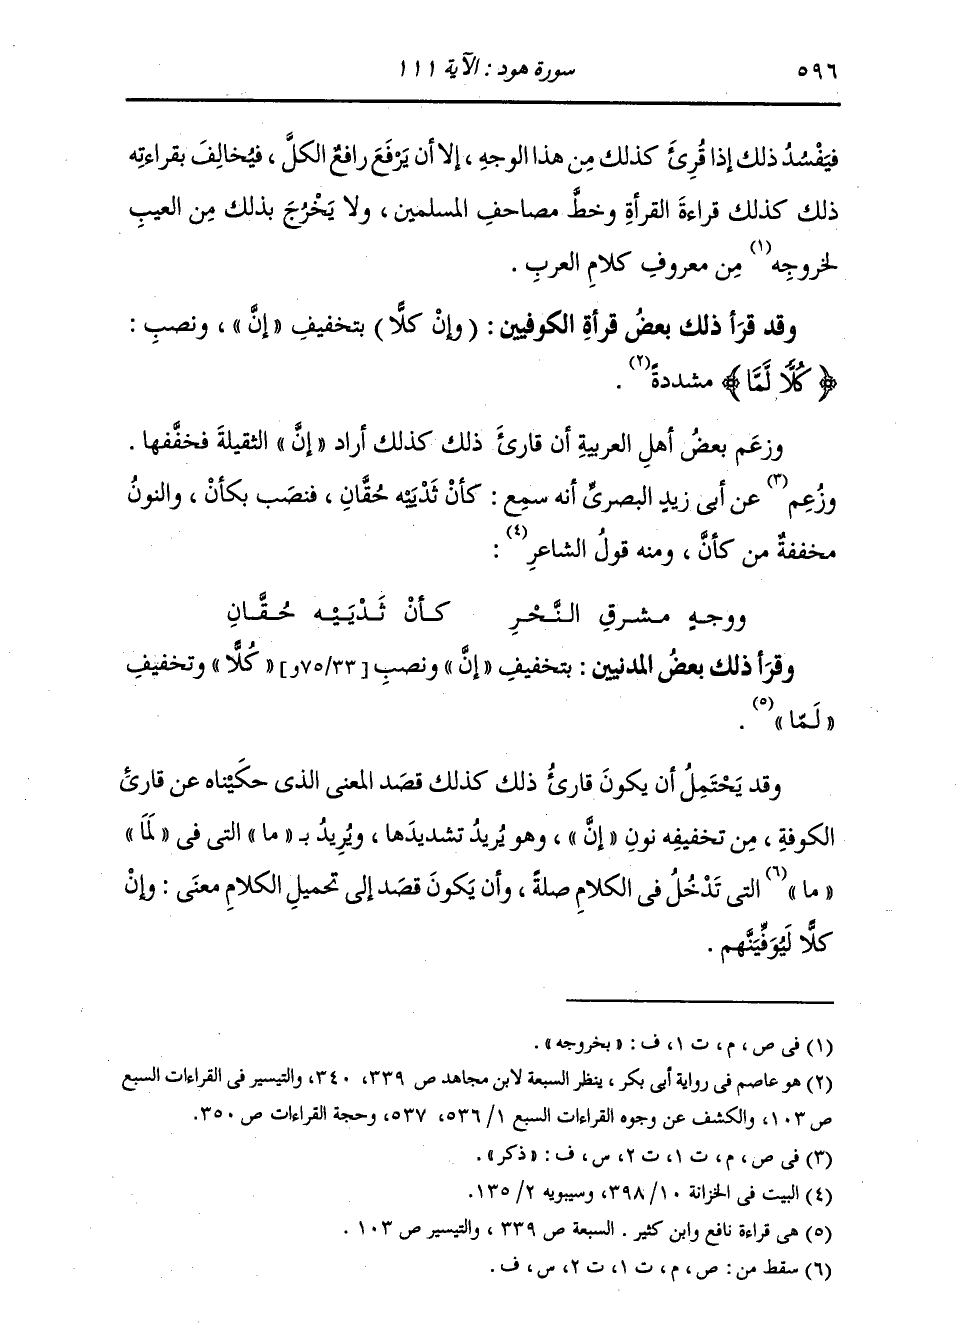 ٥٩٦ سورة هود : الآية ١١١
فيَفْسُدُ ذلك إذا قُرِئَ كذلك مِن هذا الوجهِ ، إلا أن يَرْفَعَ رافعٌ الكلَّ ، فيُخالِفَ بقراءتِه
ذلك كذلك قراءةَ القرأةِ وخطَّ مصاحفِ المسلمين ، ولا يَخْرُجَ بذلك مِن العيبِ
لخروجِه(١) مِن معروفِ كلامِ العربِ .
وقد قرَأ ذلك بعضُ قرأةِ الكوفيين : ( وإنْ كلًّا ) بتخفيفِ « إنَّ » ، ونصبِ :
﴿ كُلًّا لَّمَّا ﴾ مشددةً(٢) .
وزعَم بعضُ أهلِ العربيةِ أن قارئَ ذلك كذلك أراد « إنَّ » الثقيلةَ فخفَّفها .
وزُعِم(٣) عن أبى زيدٍ البصرىِّ أنه سمِع : كأنْ ثَدْيَيْه حُقَّانِ ، فنصَب بكأنْ ، والنونُ
مخففةٌ من كأنَّ ، ومنه قولُ الشاعرِ(٤) :
ووجـهٍ مـشـرقِ الـنَّـحْـرِ كـأنْ ثَـدْيَـيْـه حُـقَّـانِ
وقرَأ ذلك بعضُ المدنيين : بتخفيفِ « إنَّ » ونصبِ [٧٥/٣٣و] « كُلًّا » وتخفيفِ
« لَـمّا »(٥) .
وقد يَحْتَمِلُ أن يكونَ قارئُ ذلك كذلك قصَد المعنى الذى حكَيْناه عن قارئَ
الكوفةِ ، مِن تخفيفِه نونِ « إنَّ » ، وهو يُريدُ تشديدَها ، ويُرِيدُ بـ « ما » التى فى « لَمَا »
« ما »(٦) التى تَدْخُلُ فى الكلامِ صلةً ، وأن يَكونَ قصَد إلى تحميلِ الكلامِ معنَى : وإنْ
كلًّا لَيُوَفِّيَنَّهم .
(١) فى ص ، م ، ت ١، ف : « بخروجه » .
(٢) هو عاصم فى رواية أبى بكر ، ينظر السبعة لابن مجاهد ص ٣٣٩، ٣٤٠، والتيسير فى القراءات السبع
ص ١٠٣، والكشف عن وجوه القراءات السبع ١/ ٥٣٦، ٥٣٧، وحجة القراءات ص ٣٥٠.
(٣) فى ص ، م ، ت ١، ت ٢، س ، ف : « ذكر » .
(٤) البيت فى الخزانة ١٠/ ٣٩٨، وسيبويه ٢/ ١٣٥.
(٥) هى قراءة نافع وابن كثير . السبعة ص ٣٣٩ ، والتيسير ص ١٠٣ .
(٦) سقط من : ص ، م ، ت ١، ت ٢، س ، ف .